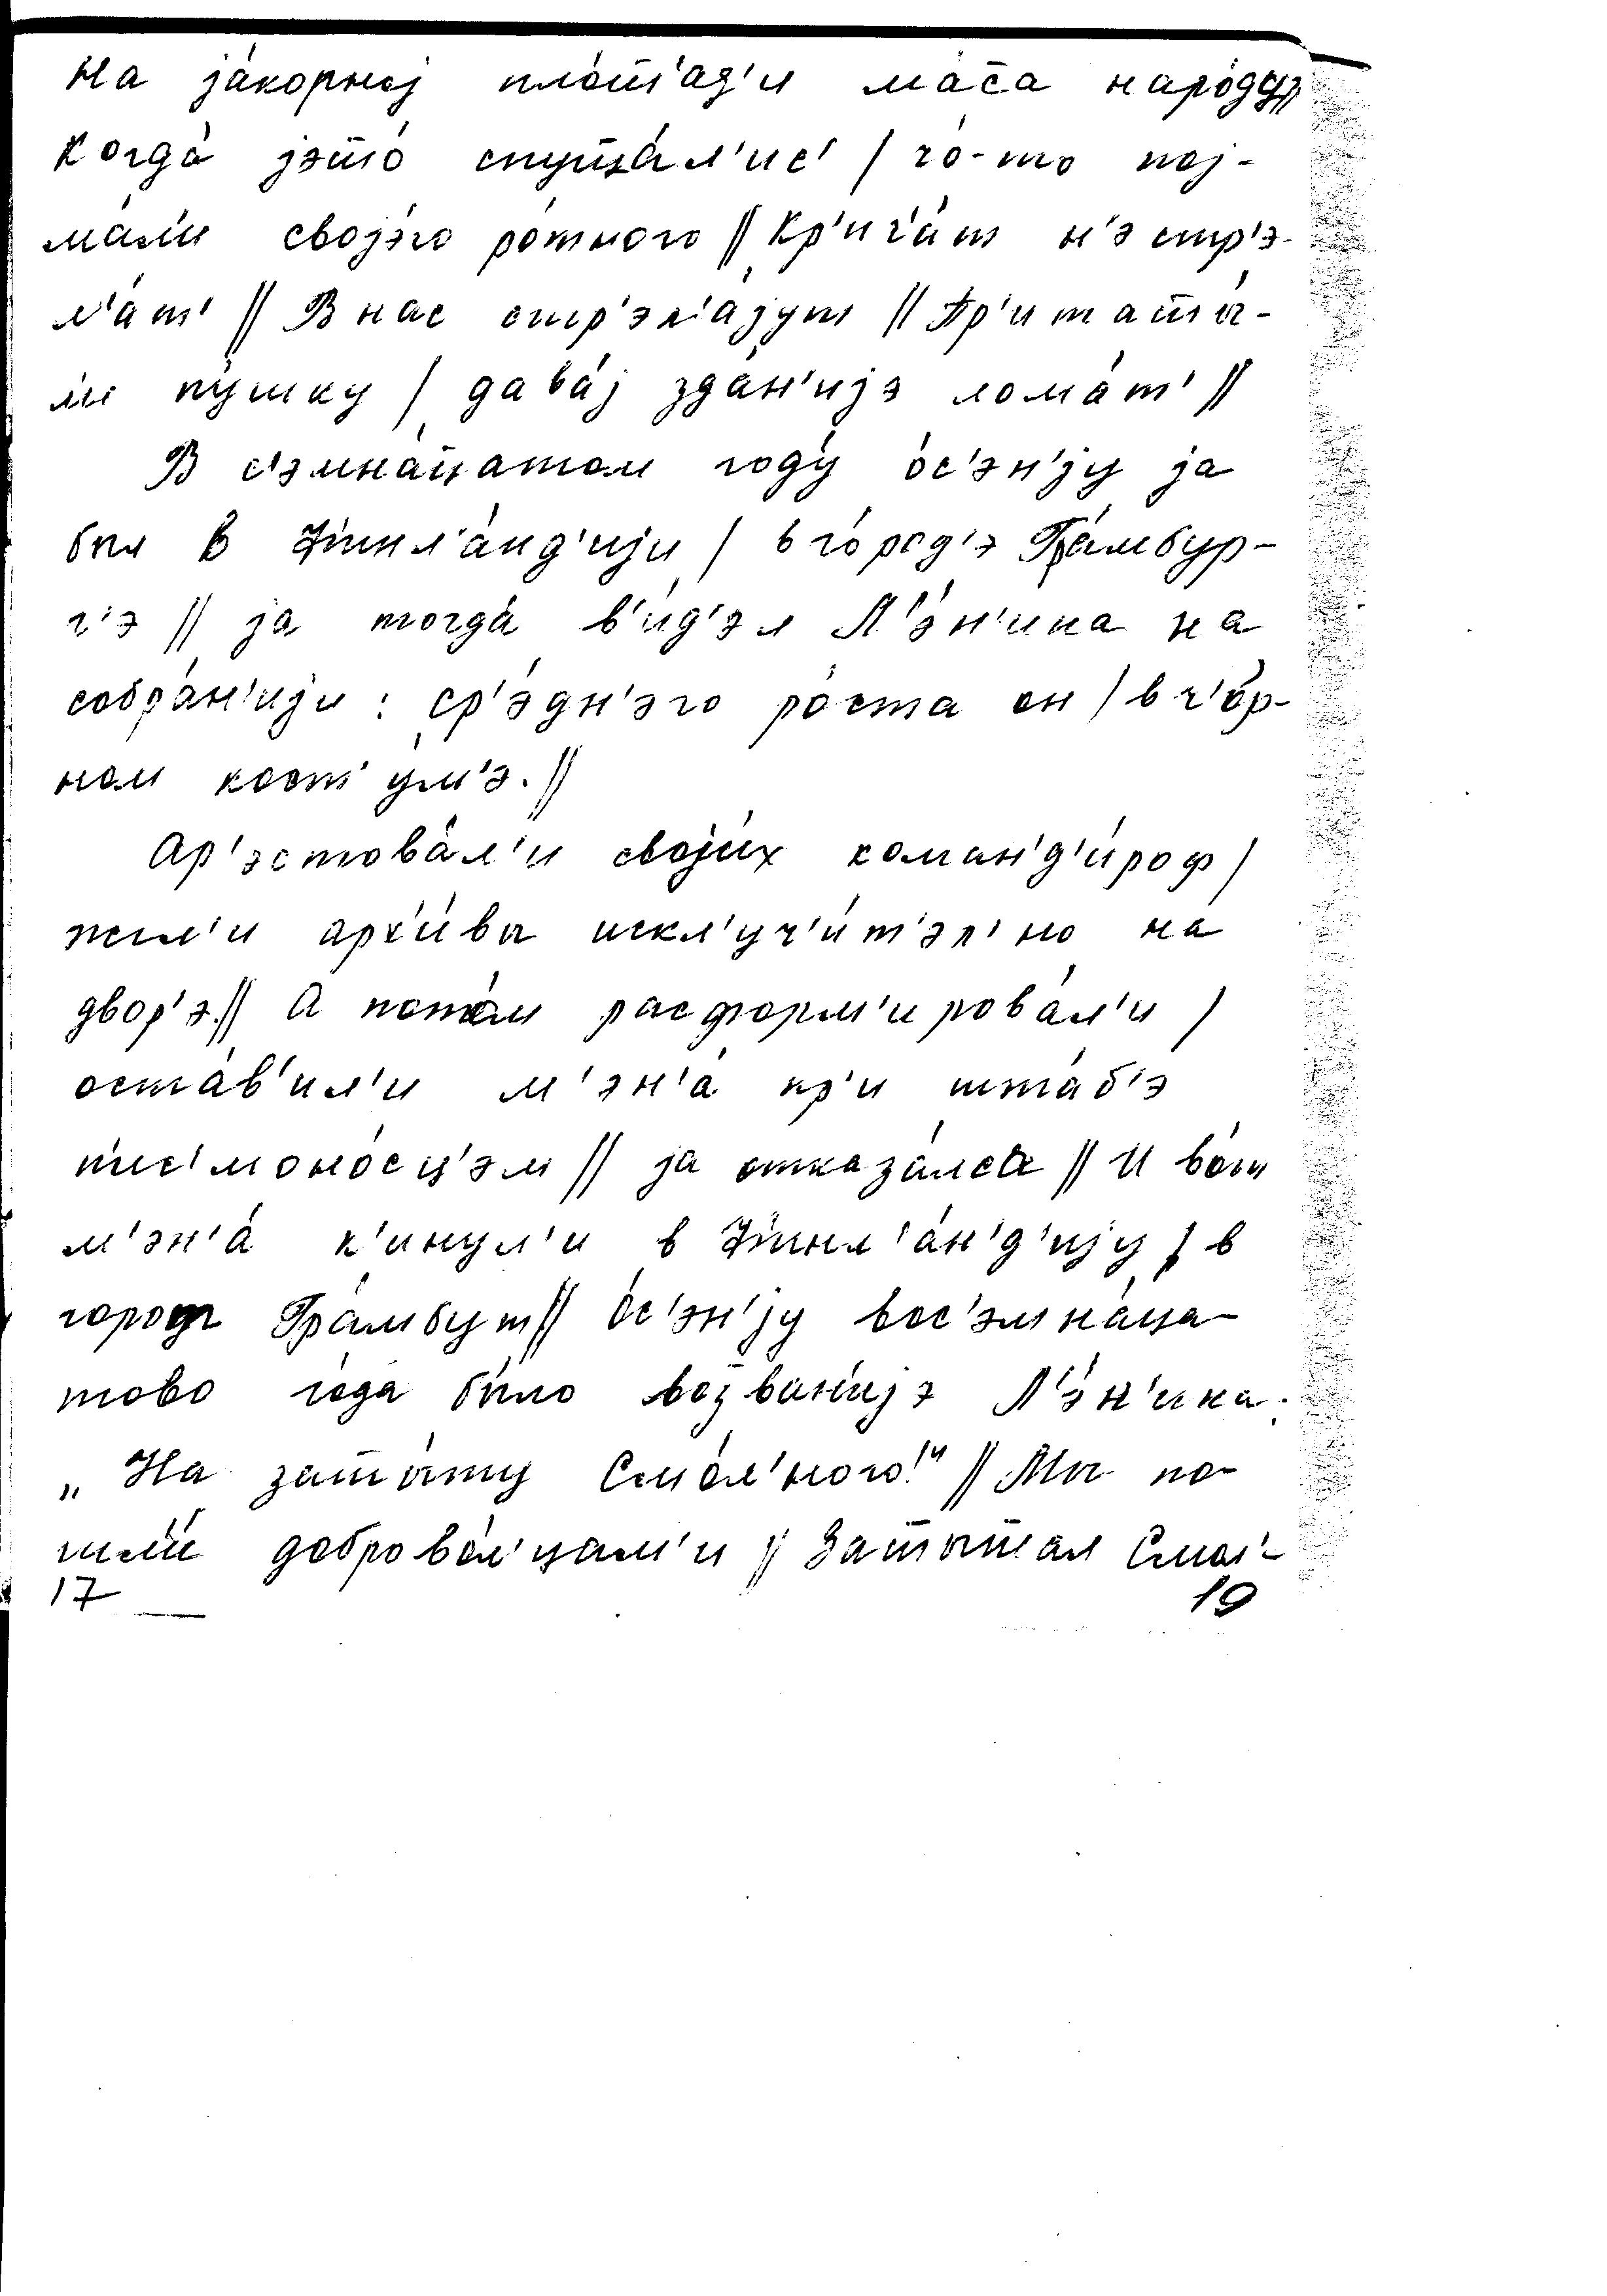 На ја́корној пло́ш̄'ад'и ма́с̄а наро́ду//
Когда́ јэ́то спуща́л'ис' / чо́-то пој-
ма́л'и својэго ро́тного // Кр'ич'а́т н'э стр'э-
л'а́т' // В нас стр'эл'а́јут // Пр'ита ш̄ы́-
л'и пу́шку / дава́ј зда́н'ијэ лома́т' //
В с'эмна́ц̄атом году́ о́с'эн'ју ја
был в Финл'а́нд'ији / в го́род'э Га́мбур-
г'э // ја тогда́ в'и́д'эл Л'э́н'ина на
собра́н'ији : ср'э́дн'эго ро́ста он / в ч'о́р-
ном кост'у́м'э. //
Ар'эстова́л'и своји́х коман'д'и́роф /
жгл'и арх'и́вы искл'уч'и́т'эл'но на
двор'э. // А пото́м расформ'ирова́л'и /
оста́в'ил'и м'эн'а́ пр'и шта́б'э
п'ис'моно́сц'эм // ја отказа́лса // И во́т
м'эн'а́ к'и́нул'и в Финл'а́н'д'ију / в
город Гра́мбут // о́с'эн'ју вос'эмна́ца-
тово го́да бы́ло возва́н'ијэ Л'э́н'ина:
„На защ̄и́ту Смо́л'ного!“ // Мы по-
шл'и́ доброво́л'цам'и // Защ̄ищ̄ал Смол'-
17 19